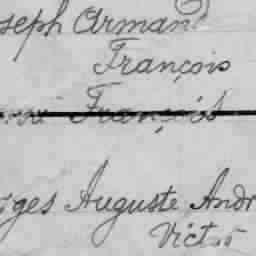 seph Armand
François
François
ges Auguste Andr
Victor